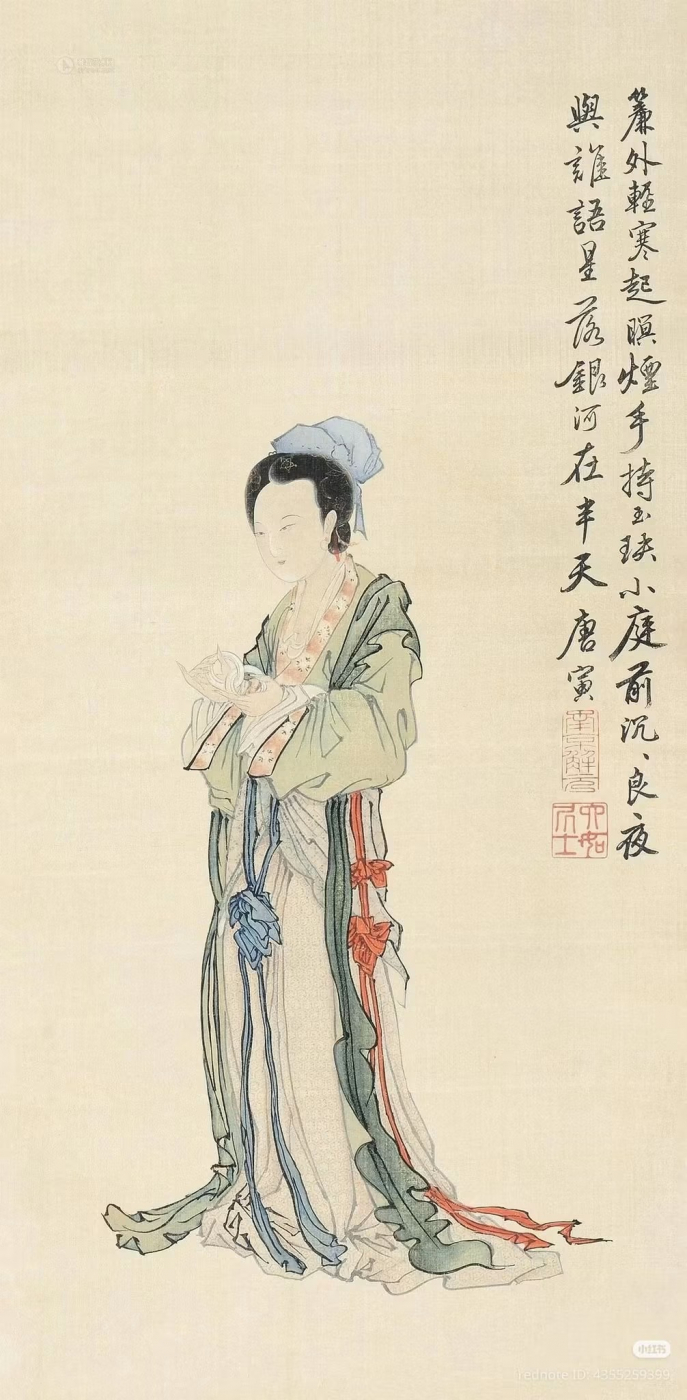 簾外輕寒起暝煙手持玉玦小庭前沉、良夜
與誰語星落銀河在半天唐寅
南京解元
六如居士
小红书
rednote ID: 4355259399